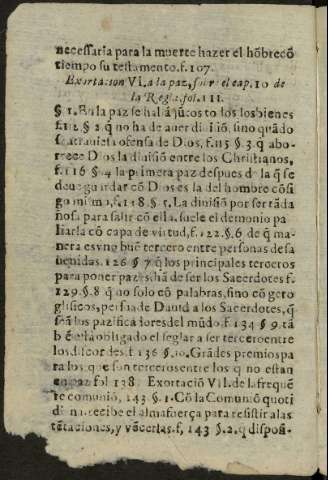 necessaria para la muerte hazer el hõbre cõ
tiempo su testamento. f. 107.
Exortacion VI. a la paz, sobre el cap. 10 de
la Regla. fol. 111.
§ 1. En la paz se hallã jũtos to los los bienes
f. 112 § 2. q no ha de auer diuisiõ, sino quãdo
se atrauiesa ofensa de Dios, f. 115 § 3. q abo-
rrece Dios la diuisiõ entre los Christianos,
f. 116 § 4 la primera paz despues de la q se
deue guardar cõ Dios es la del hombre cõsi-
go mismo, f. 118. § 5. La diuisiõ por ser tã da
ñosa para salir cõ ella, suele el demonio pa
liarla cõ capa de virtud, f. 122. §. 6 de q ma-
nera es vn g buẽ tercero entre personas desa
uenidas. 126 § 7 q los principales terceros
para poner paz hã de ser los Sacerdotes f.
129. §. 8 q no solo cõ palabras, sino cõ gero
glificos, persuade Dauid a los Sacerdotes, q
seã los pazificadores del mũdo. f. 134 § 9. tã
biẽ està obligado el seglar a ser tercero entre
los discordes. f. 136 §. 10. Grãdes premios pa
ra los que son terceros entre los q no estan
en paz fol 138. Exortaciõ VII. de la frequẽ
te comuniõ, 143 §. 1. Cõ la Comuniõ quoti
diana recibe el alma fuerça para resistir a las
tẽtaciones, y vẽcerlas. f, 143 §. 2. q disposi-